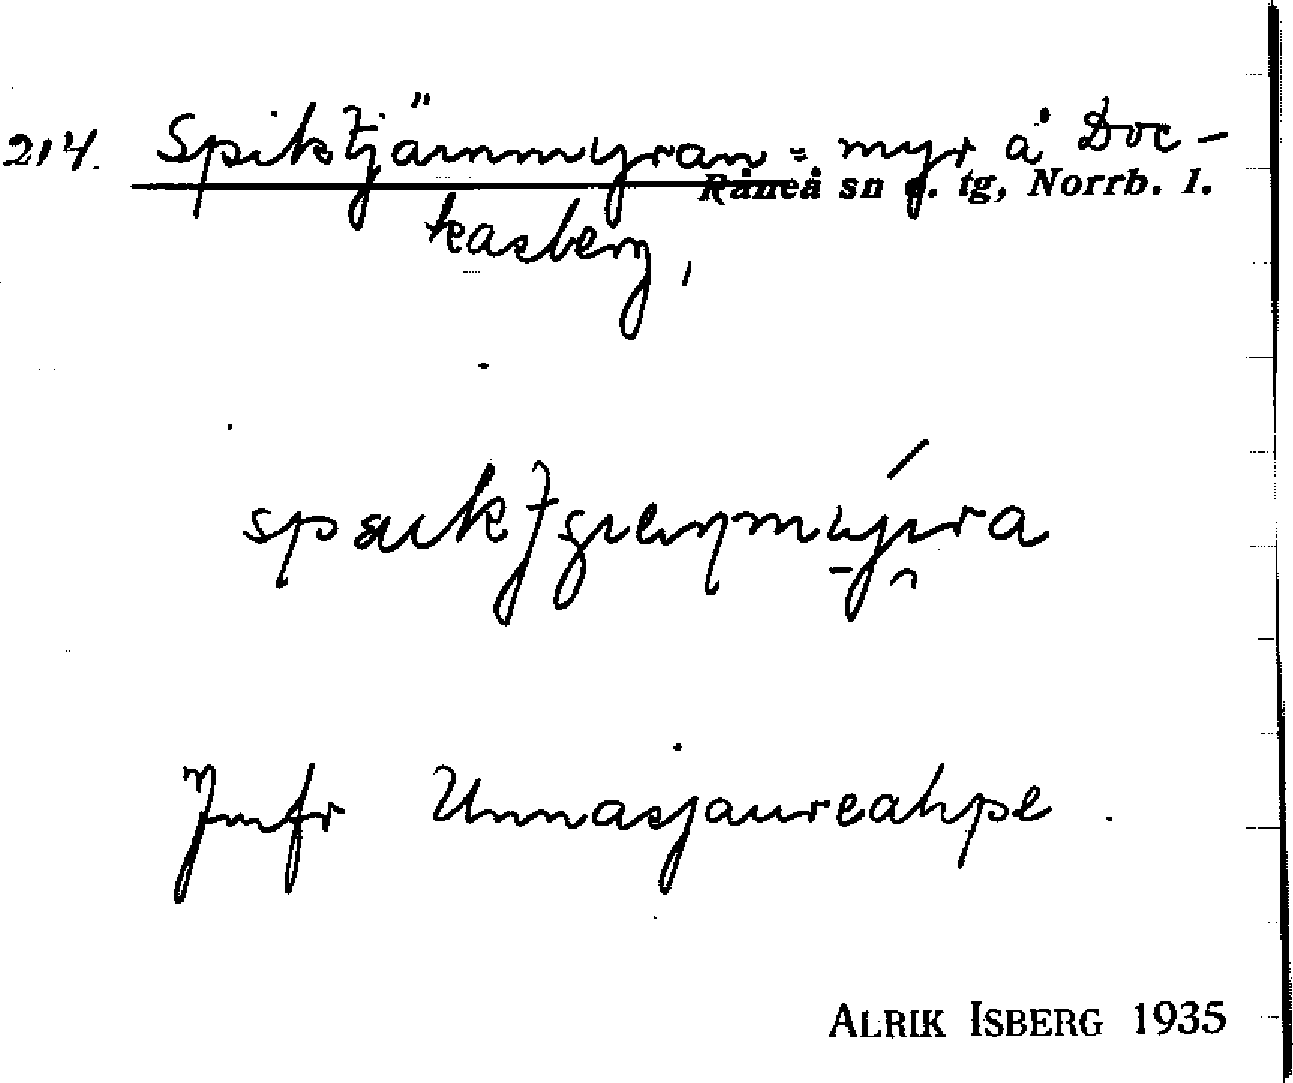 214. Spiktjärnmyran = myr å Doc-
Råneå sn o. tg, Norrb. l.
kasberg,
Jmfr Unnasjaureahpe.
ALRIK ISBERG 1935